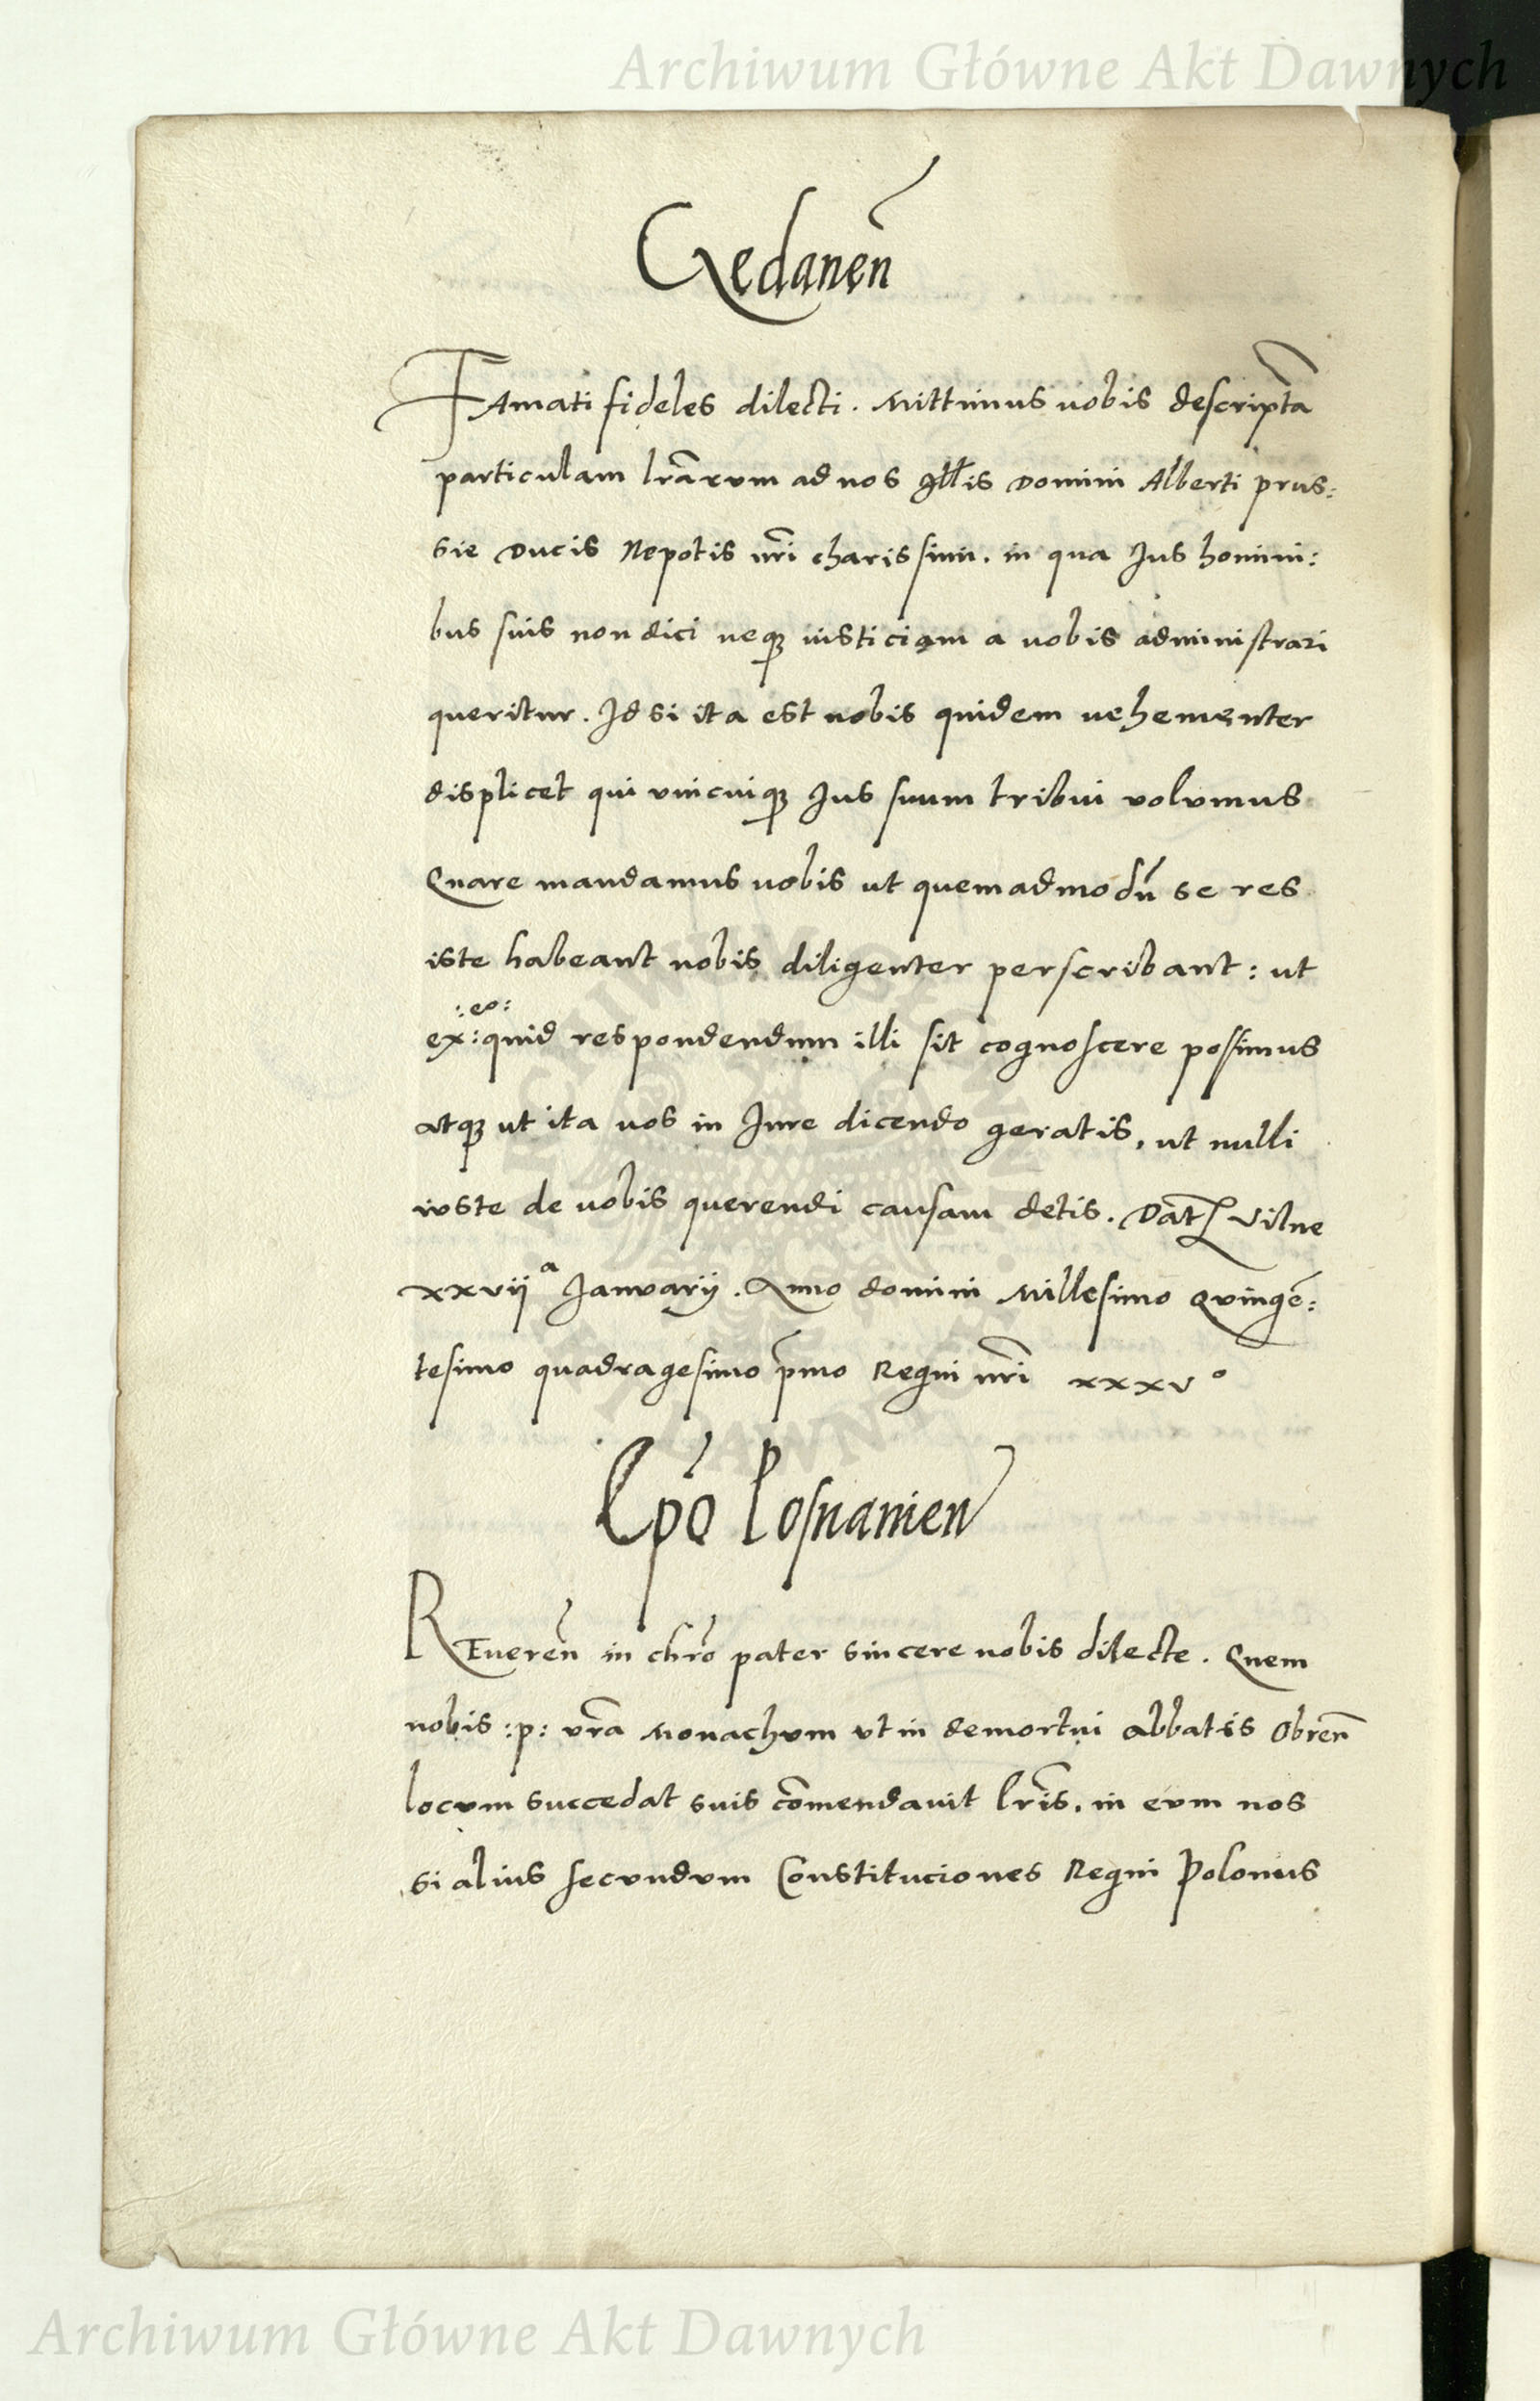 Archiwum Główne Akt Dawnych
Gedanen̄
FAmati fideles dilecti. Mittimus uobis descripta͠
particulam lr͠arum ad nos Illis Domini Alberti Prus:
sie Ducis Nepotis nr͠i charissimi. in qua Jus homini:
bus suis non dici neqꝫ iusticiam a uobis administrari
queritur. Id si ita est nobis quidem uehementer
displicet qui vnicuiqꝫ Jus suum tribui volumus
Quare mandamus uobis ut quemadmodu͠ se res
iste habeant nobis diligenter perscribant: ut
:eo:
ex: quid respondendum illi sit cognoscere possimus
atqꝫ ut ita uos in Jure dicendo geratis, ut nulli
iuste de uobis querendi causam detis. Dat͠ Vilne
xxvij a Januarij. Anno domini Millesimo Quinge͠:
tesimo quadragesimo p͠mo Regni nr͠i xxxv o
Ep͠o Posnanien̄
REueren̄ in chr͠o pater sincere nobis dilecte. Quem
nobis :p: vr͠a Monachum vt in demortui abbatis Obren̄
locum succedat suis co͠mendauit lr͠is. in eum nos
si alius secundum Constituciones Regni Polonus
Archiwum Główne Akt Dawnych